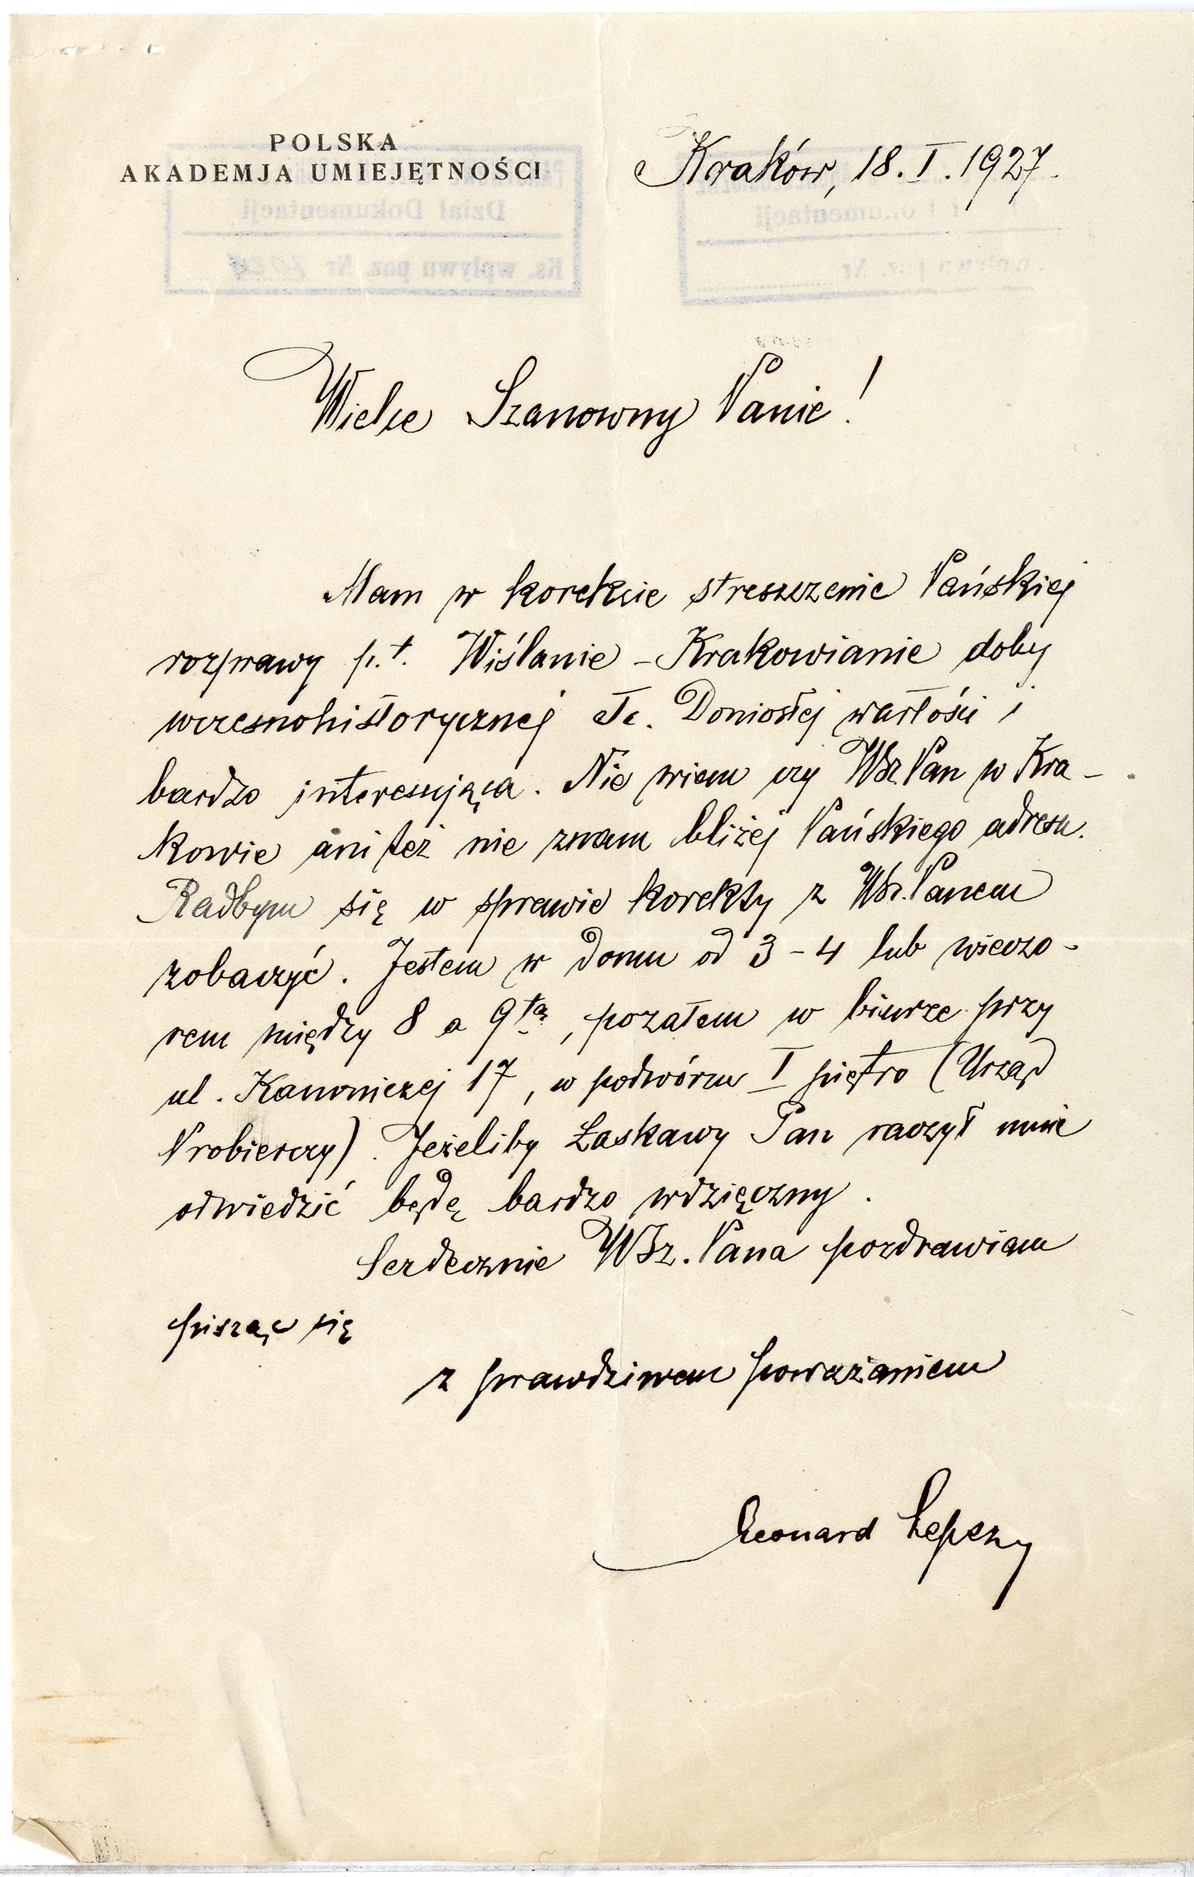 POLSKA
AKADEMJA UMIEJĘTNOŚCI
Kraków, 18. I. 1927.
Dział Dokumentacji
Ks. wpływu poz. Nr
Dział Dokumentacji
wpływu poz. Nr
Wielce Szanowny Panie!
Mam w korekcie streszczenie Pańskiej
rozprawy p.t. Wiślanie – Krakowianie doby
wczesnohistorycznej etc. Doniosłej wartości i
bardzo interesująca. Nie wiem czy WSz. Pan w Kra-
kowie ani też nie znam bliżej Pańskiego adresu.
Radbym się w sprawie korekty z WSz. Panem
zobaczyć. Jestem w domu od 3–4 lub wieczo-
rem między 8 a 9tą, pozatem w biurze przy
ul. Kanoniczej 17, w podwórzu I piętro (Urząd
Probierczy). Jeżeliby Łaskawy Pan raczył mnie
odwiedzić będę bardzo wdzięczny.
Serdecznie WSz. Pana pozdrawiam
pisząc się
z prawdziwem poważaniem
Leonard Lepszy